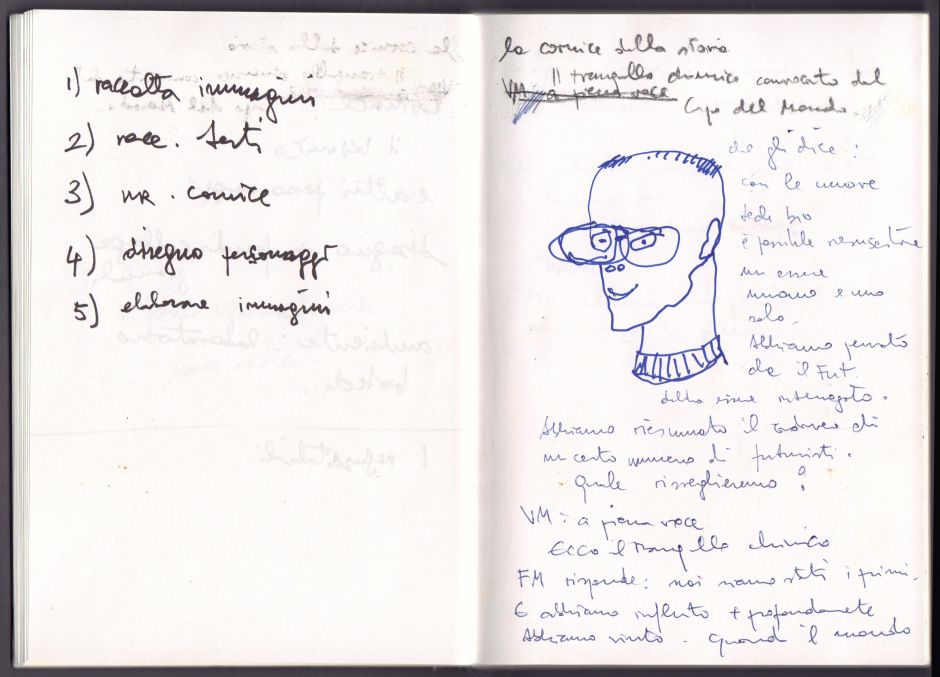 1) raccolta immagini
2) racc. testi
3) MR. cornice
4) disegno personaggi
5) elaborare immagini
la cornice della storia
Il tranquillo chimico convocato dal
VM: a piena voce
Capo del Mondo.
che gli dice:
con le nuove
tech bio
è possibile resuscitare
un essere
umano e uno
solo.
Abbiamo pensato
che il Fut.
debba essere interrogato.
Abbiamo riesumato il cadavere di
un certo numero di futuristi.
Quale risveglieremo?
VM: a piena voce
Ecco il tranquillo chimico
FM risponde: noi siamo stati i primi.
E abbiamo influito + profondamente
Abbiamo vinto. Quando il mondo